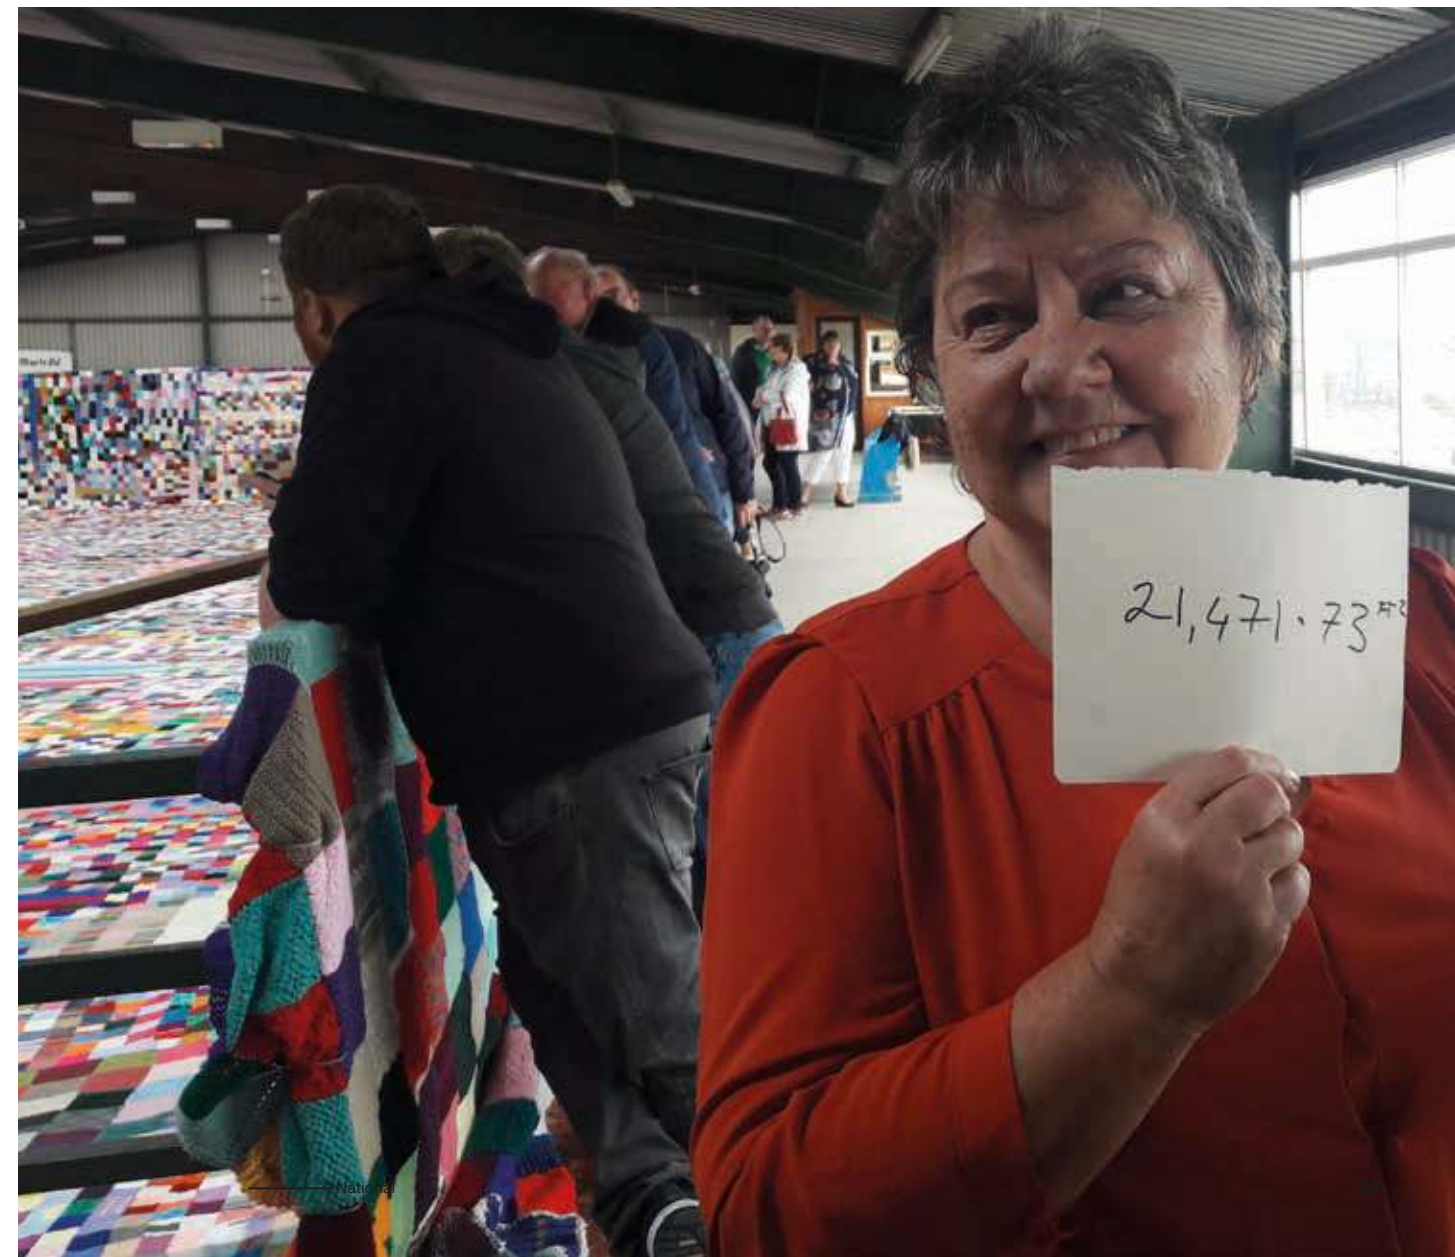 21,471.73 FT2
National